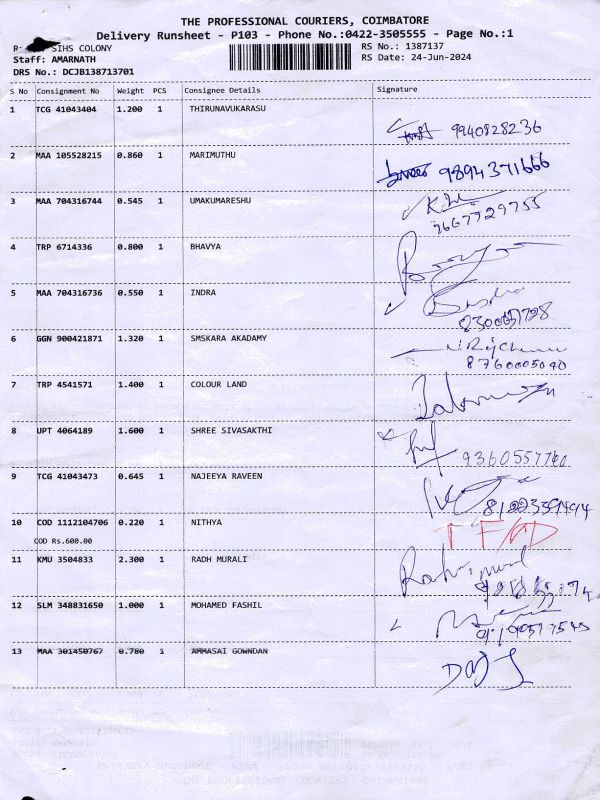 THE PROFESSIONAL COURIERS, COIMBATORE
Delivery Runsheet - P103 - Phone No.:0422-3505555 - Page No.:1
SIHS COLONY
RS No.: 1387137
Staff: AMARNATH
RS Date: 24-Jun-2024
DRS No.: DCJB138713701
S No Consignment No Weight PCS Consignee Details Signature
1 TCG 41043404 1.200 1 THIRUNAVUKARASU
9940828236
2 MAA 105528215 0.860 1 MARIMUTHU
9894371666
3 MAA 704316744 0.545 1 UMAKUMARESHU
9667729755
4 TRP 6714336 0.800 1 BHAVYA
5 MAA 704316736 0.550 1 INDRA
6 GGN 900421871 1.320 1 SMSKARA AKADAMY
8760005040
7 TRP 4541571 1.400 1 COLOUR LAND
8 UPT 4064189 1.600 1 SHREE SIVASAKTHI
9360557740
9 TCG 41043473 0.645 1 NAJEEYA RAVEEN
10 COD 1112104706 0.220 1 NITHYA
COD Rs.600.00
11 KMU 3504833 2.300 1 RADH MURALI
12 SLM 348831650 1.000 1 MOHAMED FASHIL
13 MAA 301450767 0.780 1 AMMASAI GOWNDAN